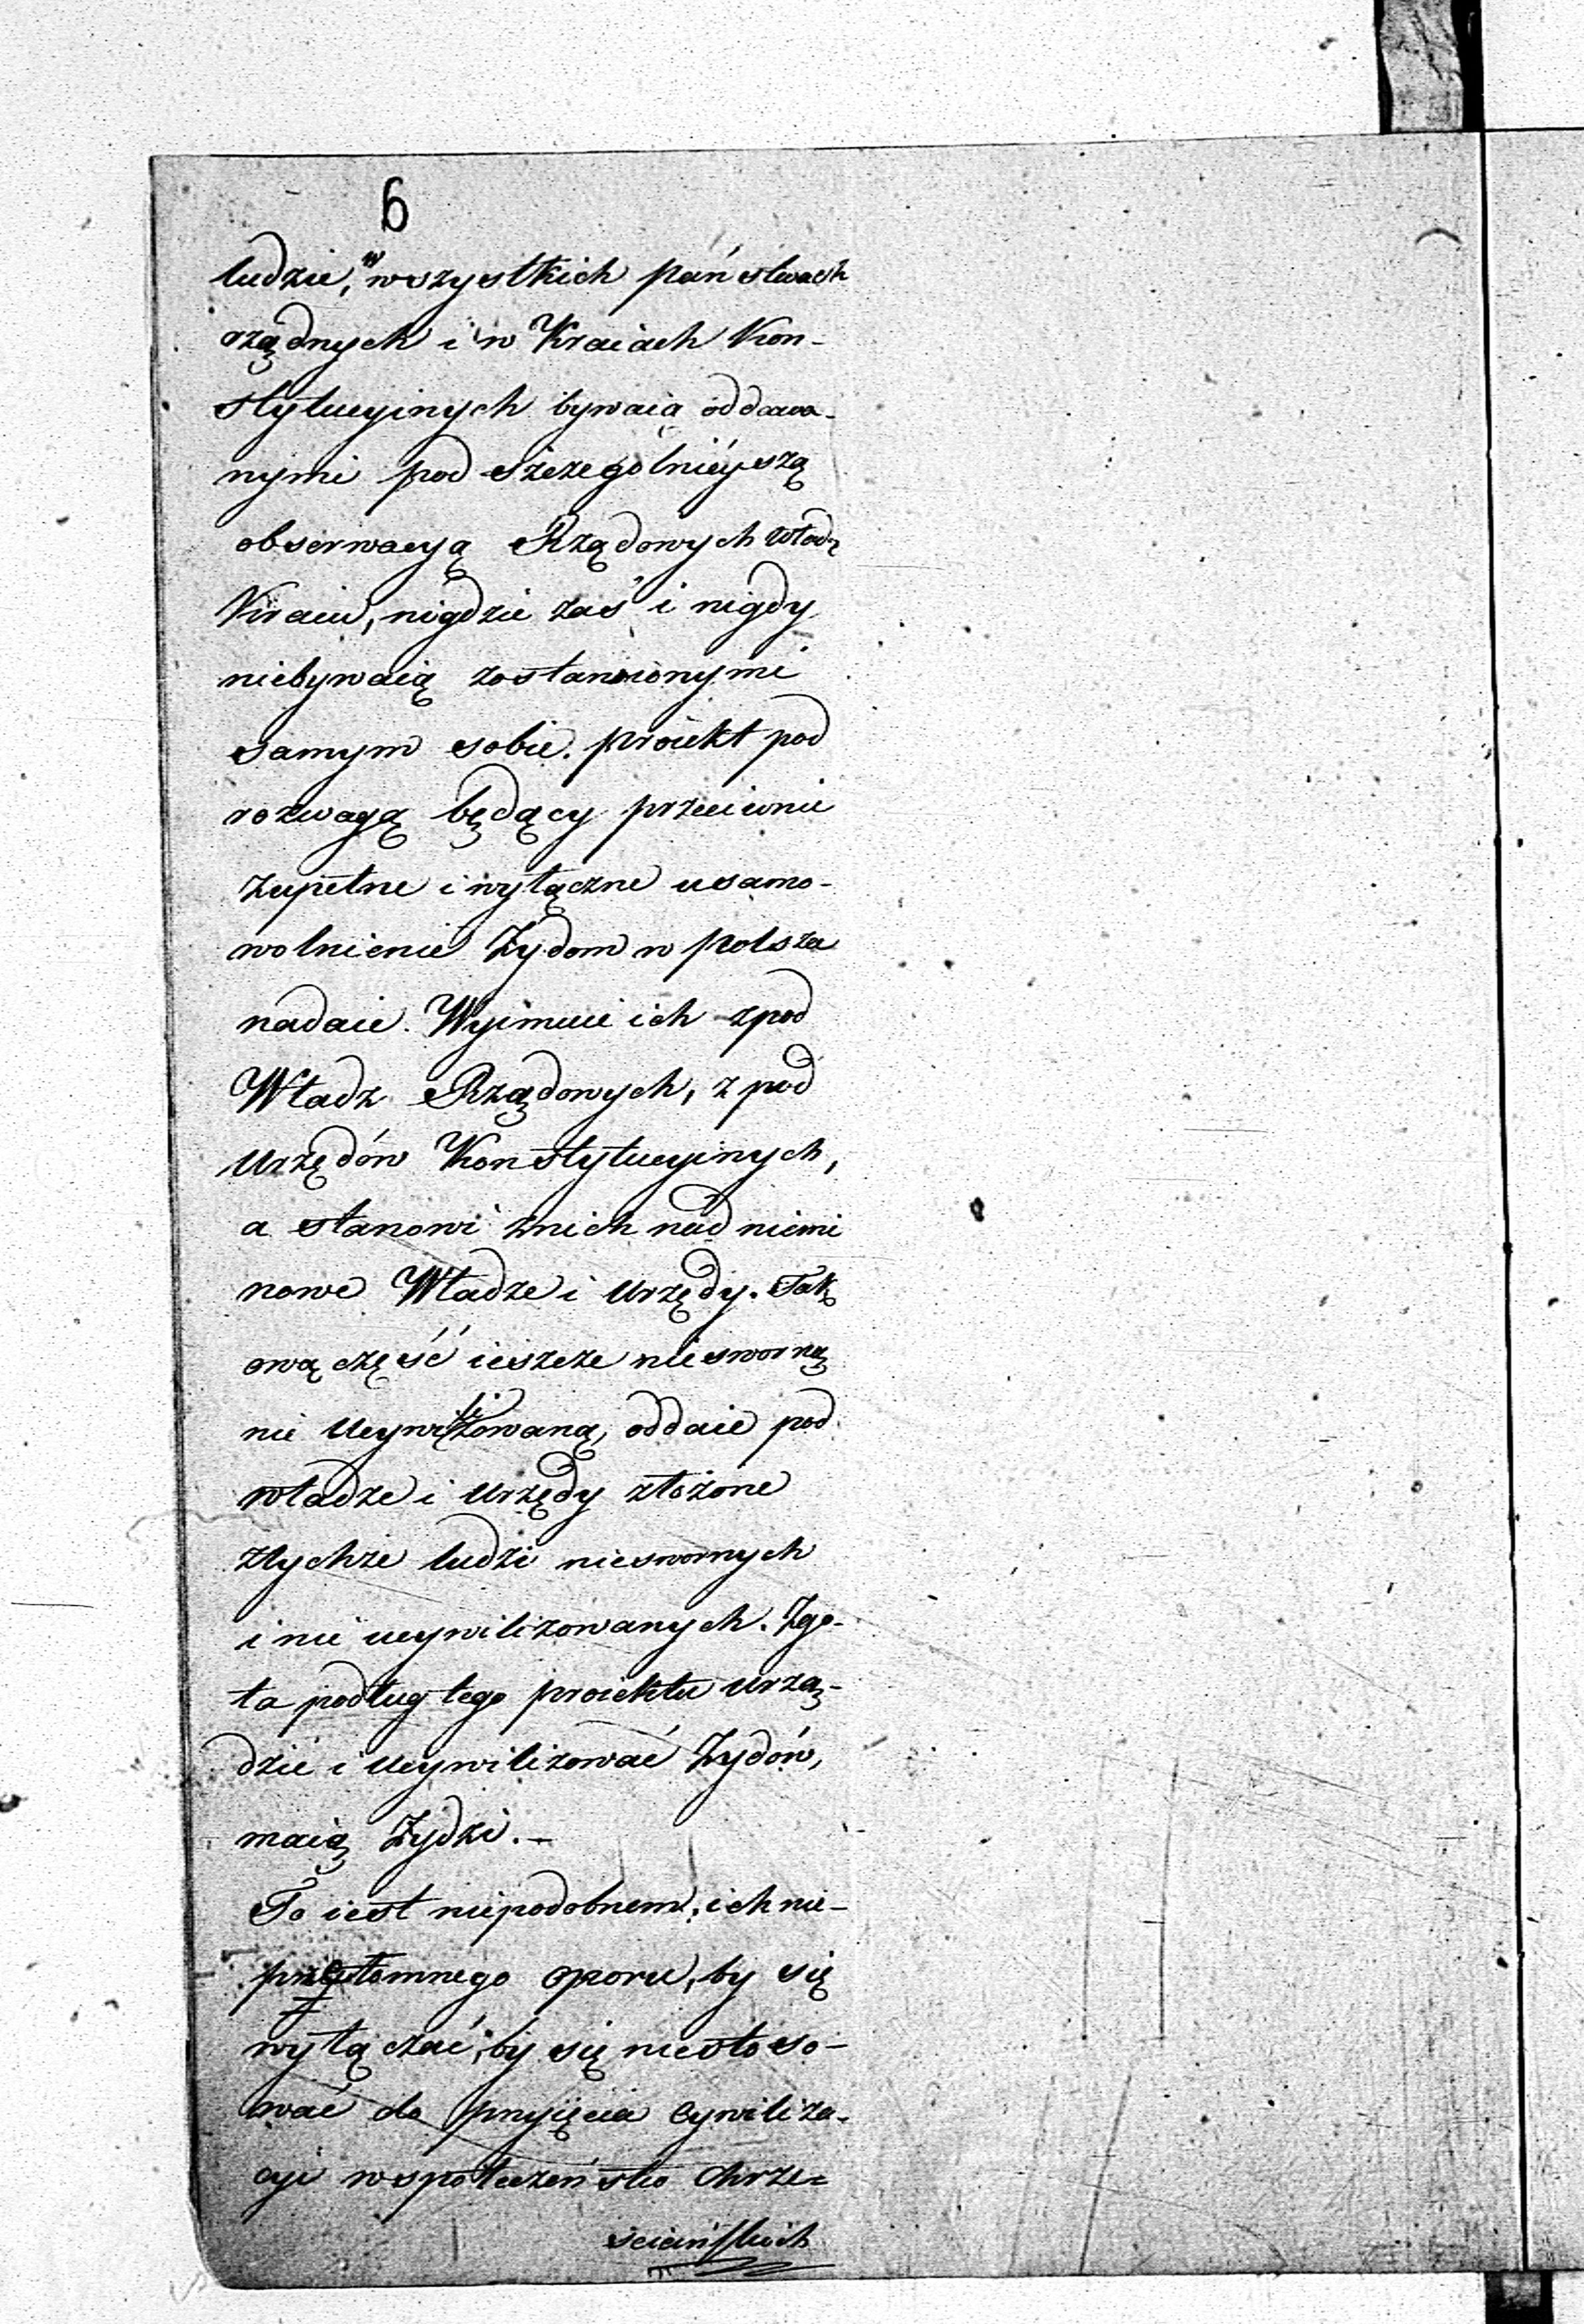 6
ludzie, w wszystkich państwach
rządnych i w Kraiach Kon-
stytucyinych bywaią oddawa-
nymi pod szczegolnieyszą
obserwacyą Rządowych Władz
Kraiu, nigdzie zaś i nigdy
niebywaią zostawionymi
samym sobie. proiekt pod
rozwagą będący przeciwnie
zupełne i wyłączne usamo-
wolnienie Żydom w polszcze
nadaie. Wyimuie ich zpod
Władz Rządowych, z pod
Urzędów Konstytucyinych,
a stanowi znich nad niemi
nowe Władze i Urzędy. Tak
ową część ieszcze niesworną
nie Ucywilizowaną, oddaie pod
władze i Urzędy złożone
ztychże ludzi nieswornych
i nie ucywilizowanych. Zgo-
ła podług tego proiektu Urzą-
dzić i Ucywilizować Żydów,
maią Żydzi. -
To iest niepodobnem, ich nie-
przełomnego oporu, by się
wyłączać, by się niestoso-
wać do przyięcia Cywiliza-
cyi wspołeczeństw Chrze=
ścciańskich